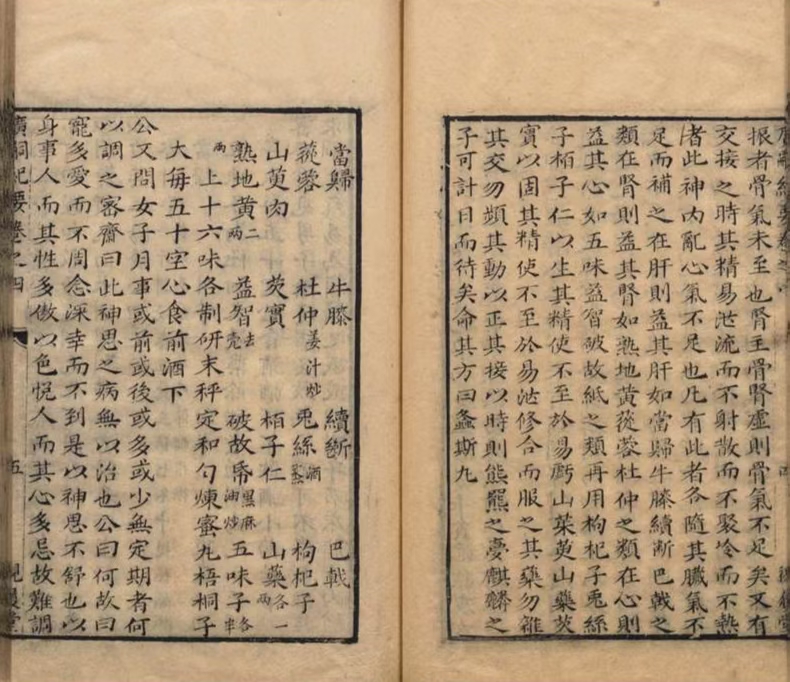 振者骨氣未至也腎主骨腎虛則骨氣不足矣又有
交接之時其精易泄流而不射散而不聚冷而不熱
者此神內亂心氣不足也凡有此者各隨其臟氣不
足而補之在肝則益其肝如當歸牛膝續斷巴戟之
類在腎則益其腎如熟地黃蓯蓉杜仲之類在心則
益其心如五味益智破故紙之類再用枸杞子兎絲
子栢子仁以生其精使不至於易虧山茱萸山藥芡
實以固其精使不至於易泄修合而服之其藥勿雜
其交勿頻其動以正其接以時則熊羆之憂麒麟之
子可計日而待矣命其方曰螽斯丸
當歸 牛膝 續斷 巴戟
蓯蓉 杜仲姜汁炒 兎絲酒蒸 枸杞子
山萸肉 芡實 栢子仁 山藥各一兩
熟地黃二兩 益智去壳 破故帋黑麻油炒 五味子各半兩
上十六味各制研末秤定和勻煉蜜丸梧桐子
大每五十空心食前酒下
公又問女子月事或前或後或多或少無定期者何
以調之密齋曰此神思之病無以治也公曰何故曰
寵多愛而不周念深幸而不到是以神思不舒也以
身事人而其性多傲以色悅人而其心多忌故難調
廣嗣紀要卷之四 五